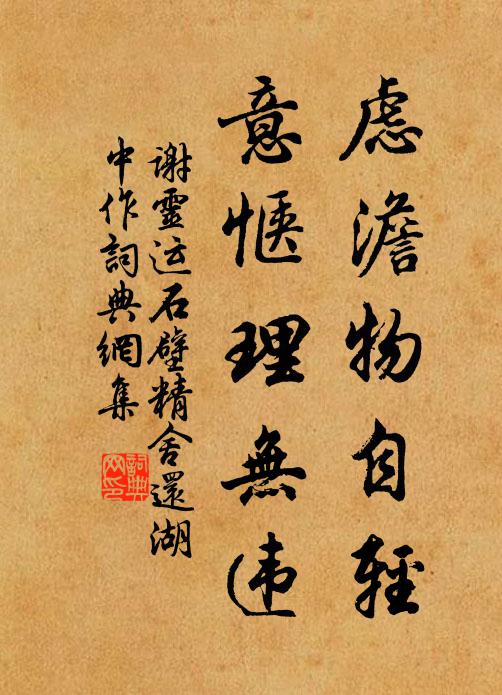 慮澹物自輕
意惬理無违
谢靈运石壁精舍還湖
中作詞典網集
詞典
网印